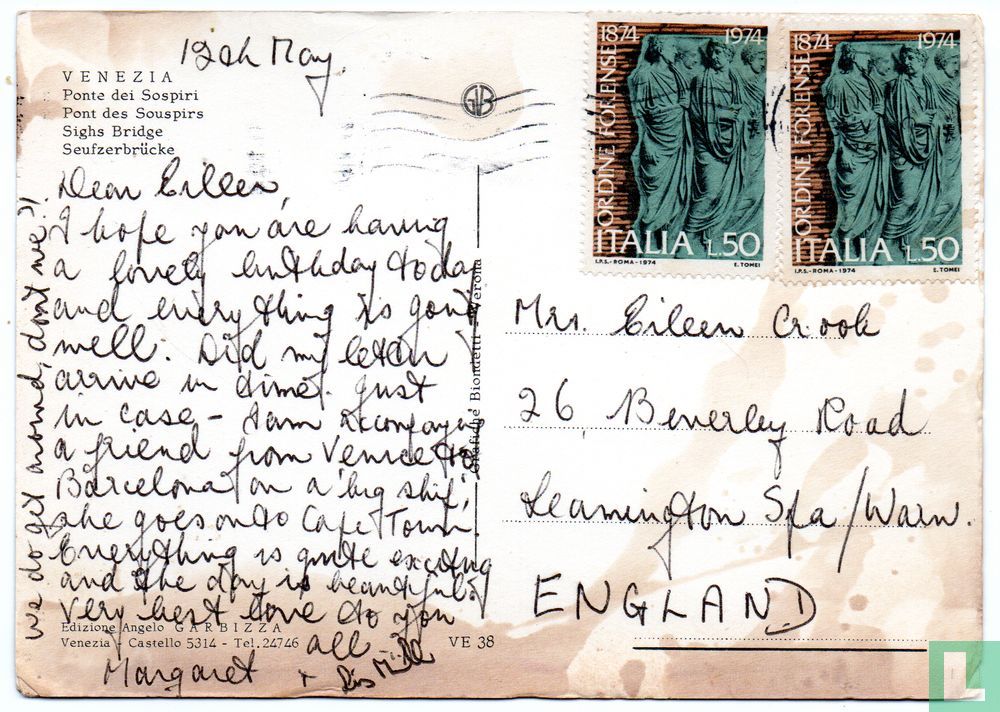 12th May.
VENEZIA
Ponte dei Sospiri
Pont des Souspirs
Sighs Bridge
Seufzerbrücke
Dear Eileen,
I hope you are having
a lovely birthday today
and everything is going
well. Did my letter
arrive in time. Just
in case – I am accompanying
a friend from Venice to
Barcelona on a 'big ship',
she goes on to Cape Town
Everything is quite exciting
and the day is beautiful,
Very best love to you
all
Margaret +
we do get around, don't we?!
Edizione Angelo GARBIZZA
Venezia Castello 5314 - Tel. 24746
VE 38
Grafiche Biondetti - Verona
GB
1874 1974
ORDINE FORENSE
ITALIA L.50
I.P.S.-ROMA-1974 E. TOMEI
1874 1974
ORDINE FORENSE
ITALIA L.50
I.P.S.-ROMA-1974 E. TOMEI
Mrs. Eileen Crook
26, Beverley Road
Leamington Spa/Warw.
ENGLAND